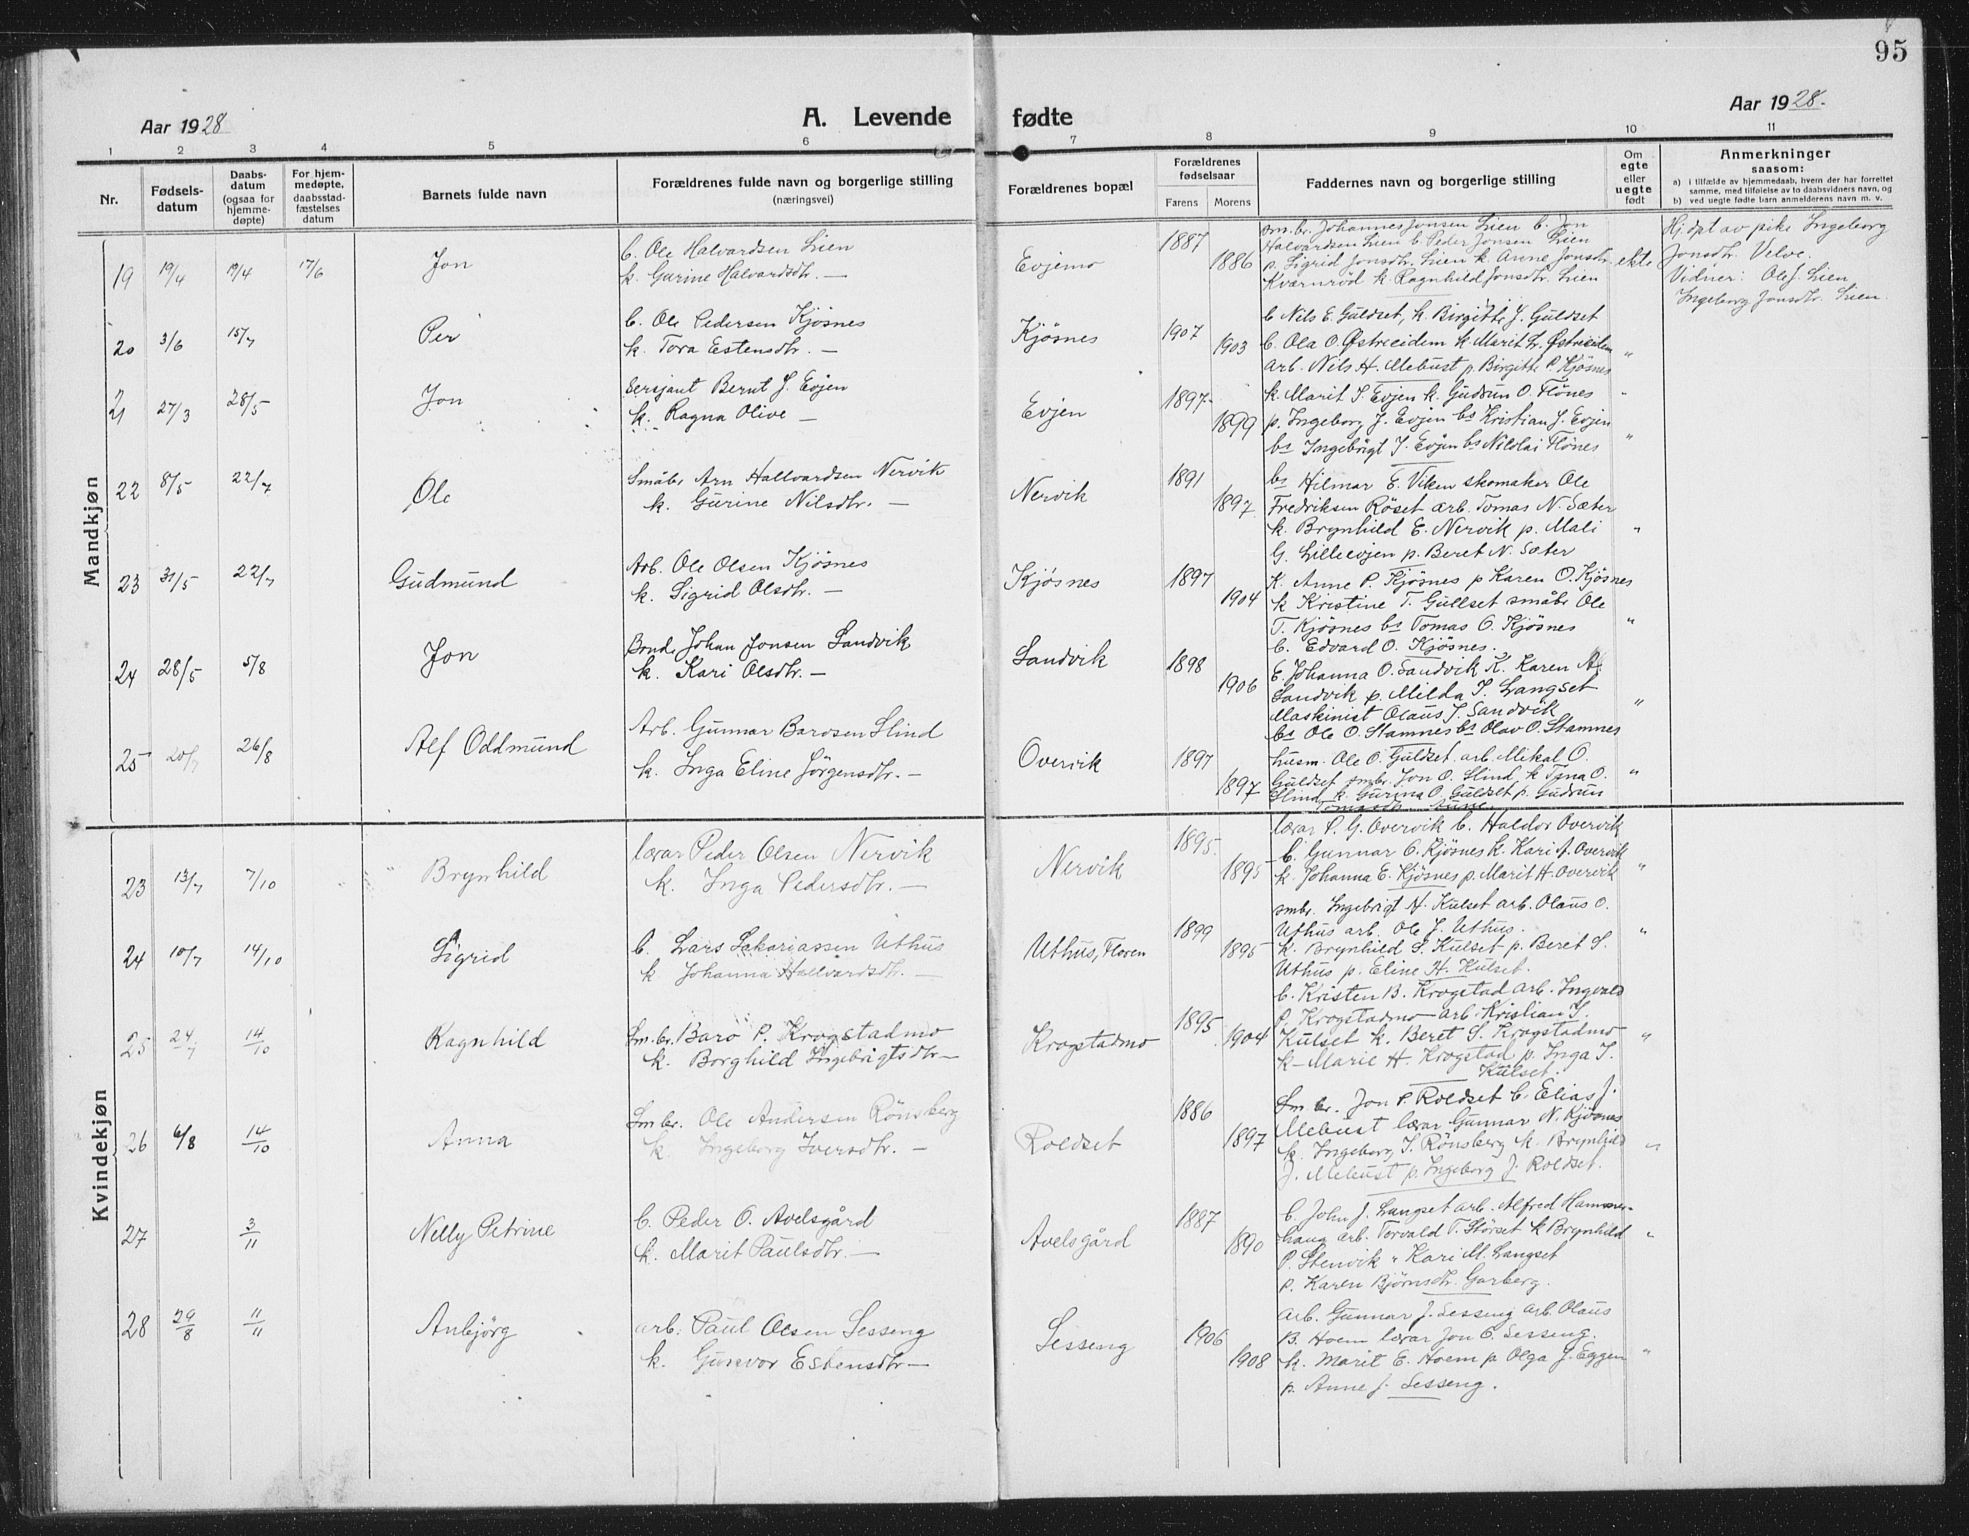 95
Aar 1928
A. Levende fødte
Aar 1928.
1 2 3 4 5 6 7 8 9 10 11
Nr.
Fødsels-
datum
Daabs-
datum
(ogsaa for
hjemme-
døpte)
For hjem-
medøpte,
daabsstad-
fæstelses
datum
Barnets fulde navn
Forældrenes fulde navn og borgerlige stilling
(næringsvei)
Forældrenes bopæl
Forældrenes
fødselsaar
Farens Morens
Faddernes navn og borgerlige stilling
Om
egte
eller
uegte
født
Anmerkninger
saasom:
a) i tilfælde av hjemmedaab, hvem der har forrettet
samme, med tilføielse av to daabsvidners navn, og
b) ved uegte fødte barn anmelderens navn m. v.
Mandkjøn
19 19/4 19/4 17/6 Jon
b. Ole Halvardsen Lien
k. Gurine Halvardsdtr. —
Evjemo 1887 1886
sm.br. Johannes Jonsen Lien b. Jon
Halvardsen Lien b Peder Jonsen Lien
p. Sigrid Jonsdtr. Lien k. Anne Jonsdtr.
Kvernrød k Ragnhild Jonsdtr. Lien
ekte
Hj.døpt av pike Ingeborg
Jonsdtr. Velve.
Vidner: Ole J. Lien
Ingeborg Jonsdtr. Lien.
20 3/6 15/7 Per
b. Ole Pedersen Kjøsnes
k. Tora Estensdtr. —
Kjøsnes 1907 1903
b Nils E. Guldset, k. Birgitte J. Guldset
b. Ola O. Østreeidem k Marit L. Østreeidem
arb. Nils H. Mebust p Birgitte P. Kjøsnes
"
21 27/3 28/5 Jon
Sersjant Bernt J. Evjen
k. Ragna Olive —
Evjen 1897 1899
k. Marit J. Evjen k. Gudrun O. Flønes
p. Ingeborg J. Evjen bs Kristian J. Evjen
bs Ingebrigt J. Evjen bs Nikolai Flønes
"
22 8/5 22/7 Ole
Småbr Arn Hallvardsen Nervik
k. Gurine Nilsdtr. —
Nervik 1891 1897
bs Hilmar E. Viken skomaker Ole
Fredriksen Røset arb. Tomas N. Sæter
k. Brynhild E. Nervik p. Mali
G. Lilleevjen p. Beret N. Sæter
"
23 31/5 22/7 Gudmund
Arb. Ole Olsen Kjøsnes
k. Sigrid Olsdtr. —
Kjøsnes 1897 1904
K. Anne P. Kjøsnes p Karen O. Kjøsnes
k Kristine T. Gullset småbr Ole
T. Kjøsnes bs Tomas O. Kjøsnes
b. Edvard O. Kjøsnes.
"
24 28/5 5/8 Jon
Bonde Johan Jonsen Sandvik
k. Kari Olsdtr. —
Sandvik 1898 1906
E. Johanna O. Sandvik K. Karen A.
Sandvik p. Milda J. Langset
Maskinist Olaus J. Sandvik
bs Ole O. Stamnes bs Olav O. Stamnes
"
25 20/7 26/8 Alf Oddmund
Arb. Gunnar Barosen Slind
k. Inga Eline Jørgensdtr. —
Overvik 1897 1897
husm. Ole O. Guldset arb. Mikal O.
Guldset smbr. Jon O. Slind, k Tina O.
Slind, k. Gurina O. Guldset p. Gudrun
"
Kvindekjøn
23 13/7 7/10 Brynhild
lærar Peder Olsen Nervik
k. Inga Pedersdtr. —
Nervik 1895 1895
lærar P. G. Overvik b. Haldor Overvik
b. Gunnar O. Kjøsnes k. Kari J. Overvik
k. Johanna E. Kjøsnes p. Marit H. Overvik
"
24 10/7 14/10 Sigrid
b. Lars Sakariassen Uthus
k. Johanna Hallvardsdtr. —
Uthus, Floren 1899 1895
smbr. Ingebrigt H. Kulset arb. Olaus O.
Uthus arb. Ole J. Uthus.
k. Brynhild S. Kulset p. Beret S.
Uthus p. Eline H. Kulset.
"
25 24/7 14/10 Ragnhild
Sm.br. Baro P. Krogstadmo
k. Borghild Ingebrigtsdtr —
Krogstadmo 1895 1904
b. Kristen B. Krogstad arb. Ingvald
P. Krogstadmo arb. Kristian I.
Kulset k. Beret S. Krogstadmo
k— Marie H. Krogstad p. Inga I.
Kulset.
"
26 6/8 14/10 Anna
Smbr. Ole Andersen Rønsberg
k. Ingeborg Iversdtr. —
Roldset 1886 1897
Smbr. Jon P. Roldset b. Elias J.
Mebust lærar Gunnar N. Kjøsnes
k. Ingeborg I. Rønsberg k. Brynhild
J. Mebust p. Ingeborg J. Roldset.
"
27 3/11 Nelly Petrine
b. Peder O. Avelsgård
k. Marit Paulsdtr. —
Avelsgård 1887 1890
b. John J. Langset arb. Alfred Hammer-
haug arb. Torvald T. Størset k Brynhild
P. Stenvik " Kari M. Langset
p. Karen Bjørnsdtr. Garberg.
"
28 29/8 11/11 Anbjørg
arb. Paul Olsen Sesseng
k. Gunvor Estensdtr —
Sesseng 1906 1908
arb. Gunnar J. Sesseng arb. Olaus
B. Hoem lærar Jon O. Sesseng.
k. Marit E. Hoem p Olga J. Eggen
p. Anne J. Sesseng.
"